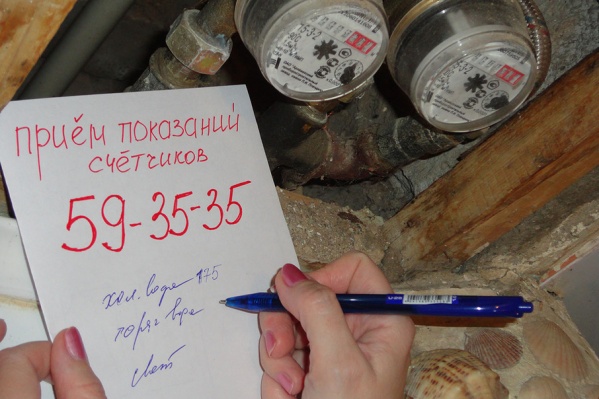 приём показаний
счётчиков
59-35-35
хол. вода 175
горяч вода
свет